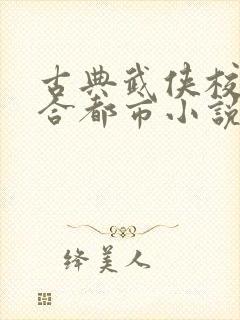 古典武侠校
合都市小說
绛美人